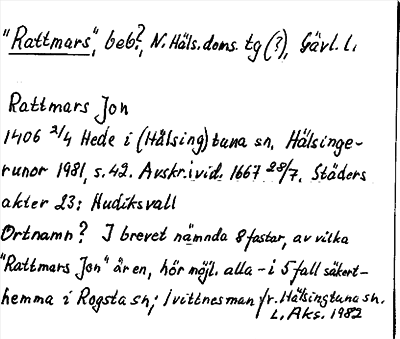 "Rattmars", beb?, N. Häls. doms. tg (?), Gävl. l.
Rattmars Jon
1406 2/4 Hede i (Hälsing)tuna sn. Hälsinge-
runor 1981, s. 42. Avskr. i vid. 1667 28/7. Städers
akter 23: Hudiksvall
Ortnamn? I brevet nämnda 8 fastar, av vilka
"Rattmars Jon" är en, hör möjl. alla - i 5 fall säkert-
hemma i Rogsta sn; 1 vittnesman fr. Hälsingtuna sn.
L. Aks. 1982